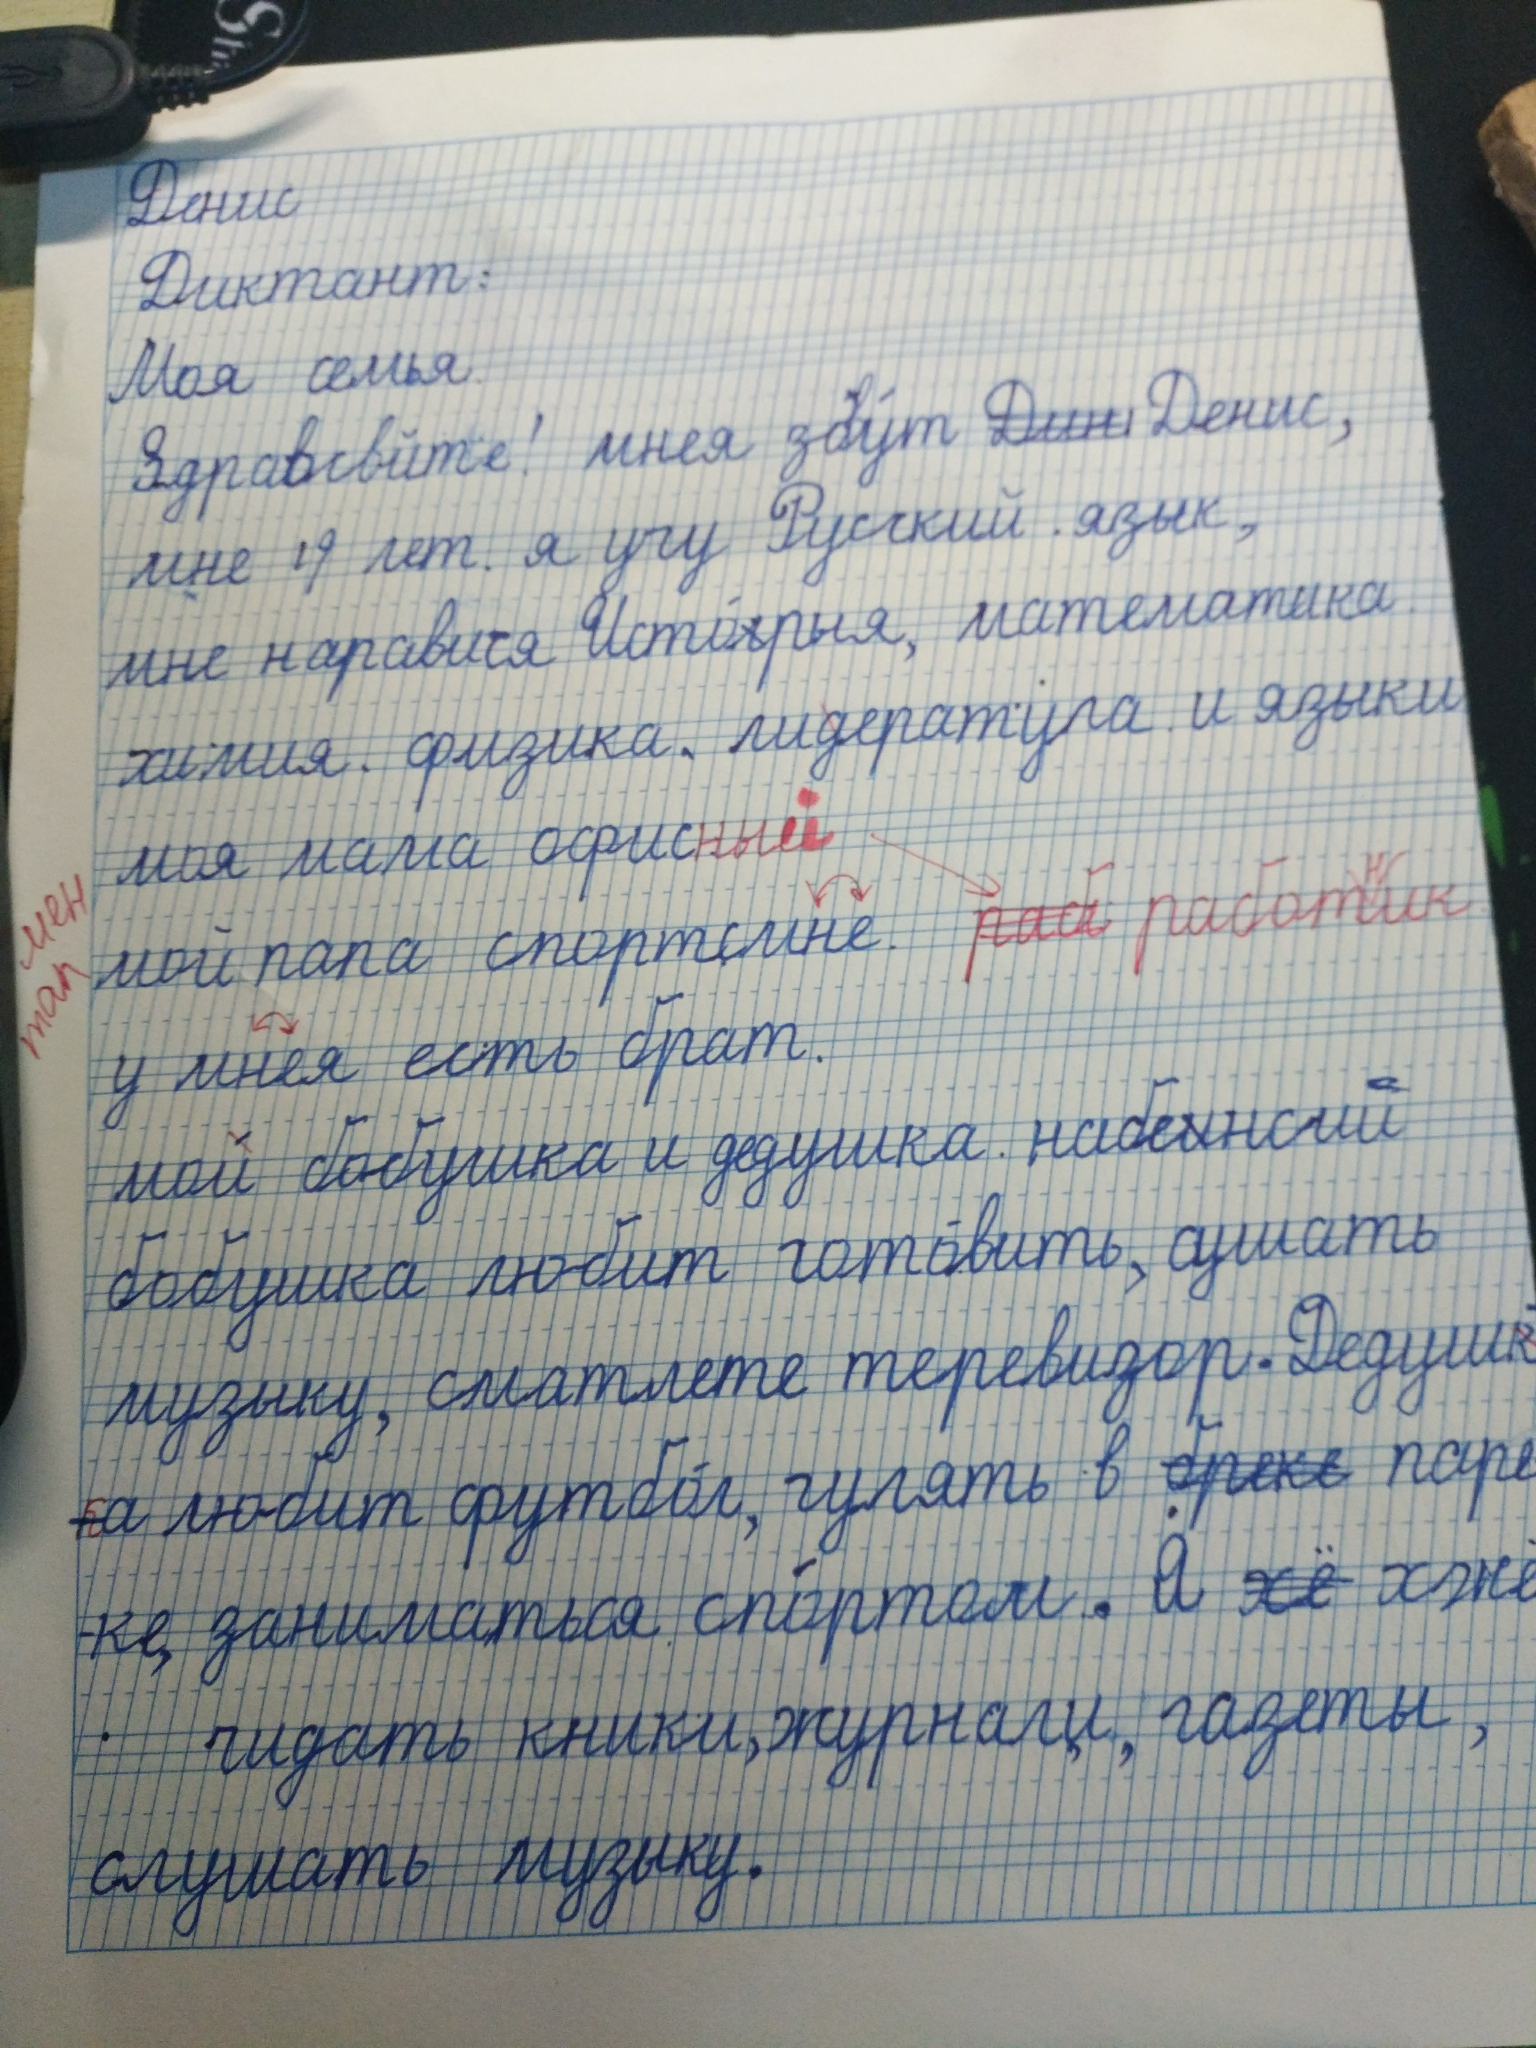 Денис
Диктант:
Моя семья
Здравсвйте! мнея збут Денис,
мне 19 лет. я учу Русский язык,
мне наравися Исторыя, математика
химия. физика. лидература и языки
моя мама офисный
мен
мой папа спортсмне. работник
у мнея есть брат.
мой бобушка и дедушка.
бобушка любит готовить, сушать
музыку, сматлете теревизор. Дедушк
а любит футбол, гулять в паре
-ке, заниматься спортом. Я
чидать кники, журналы, газеты,
слушать музыку.